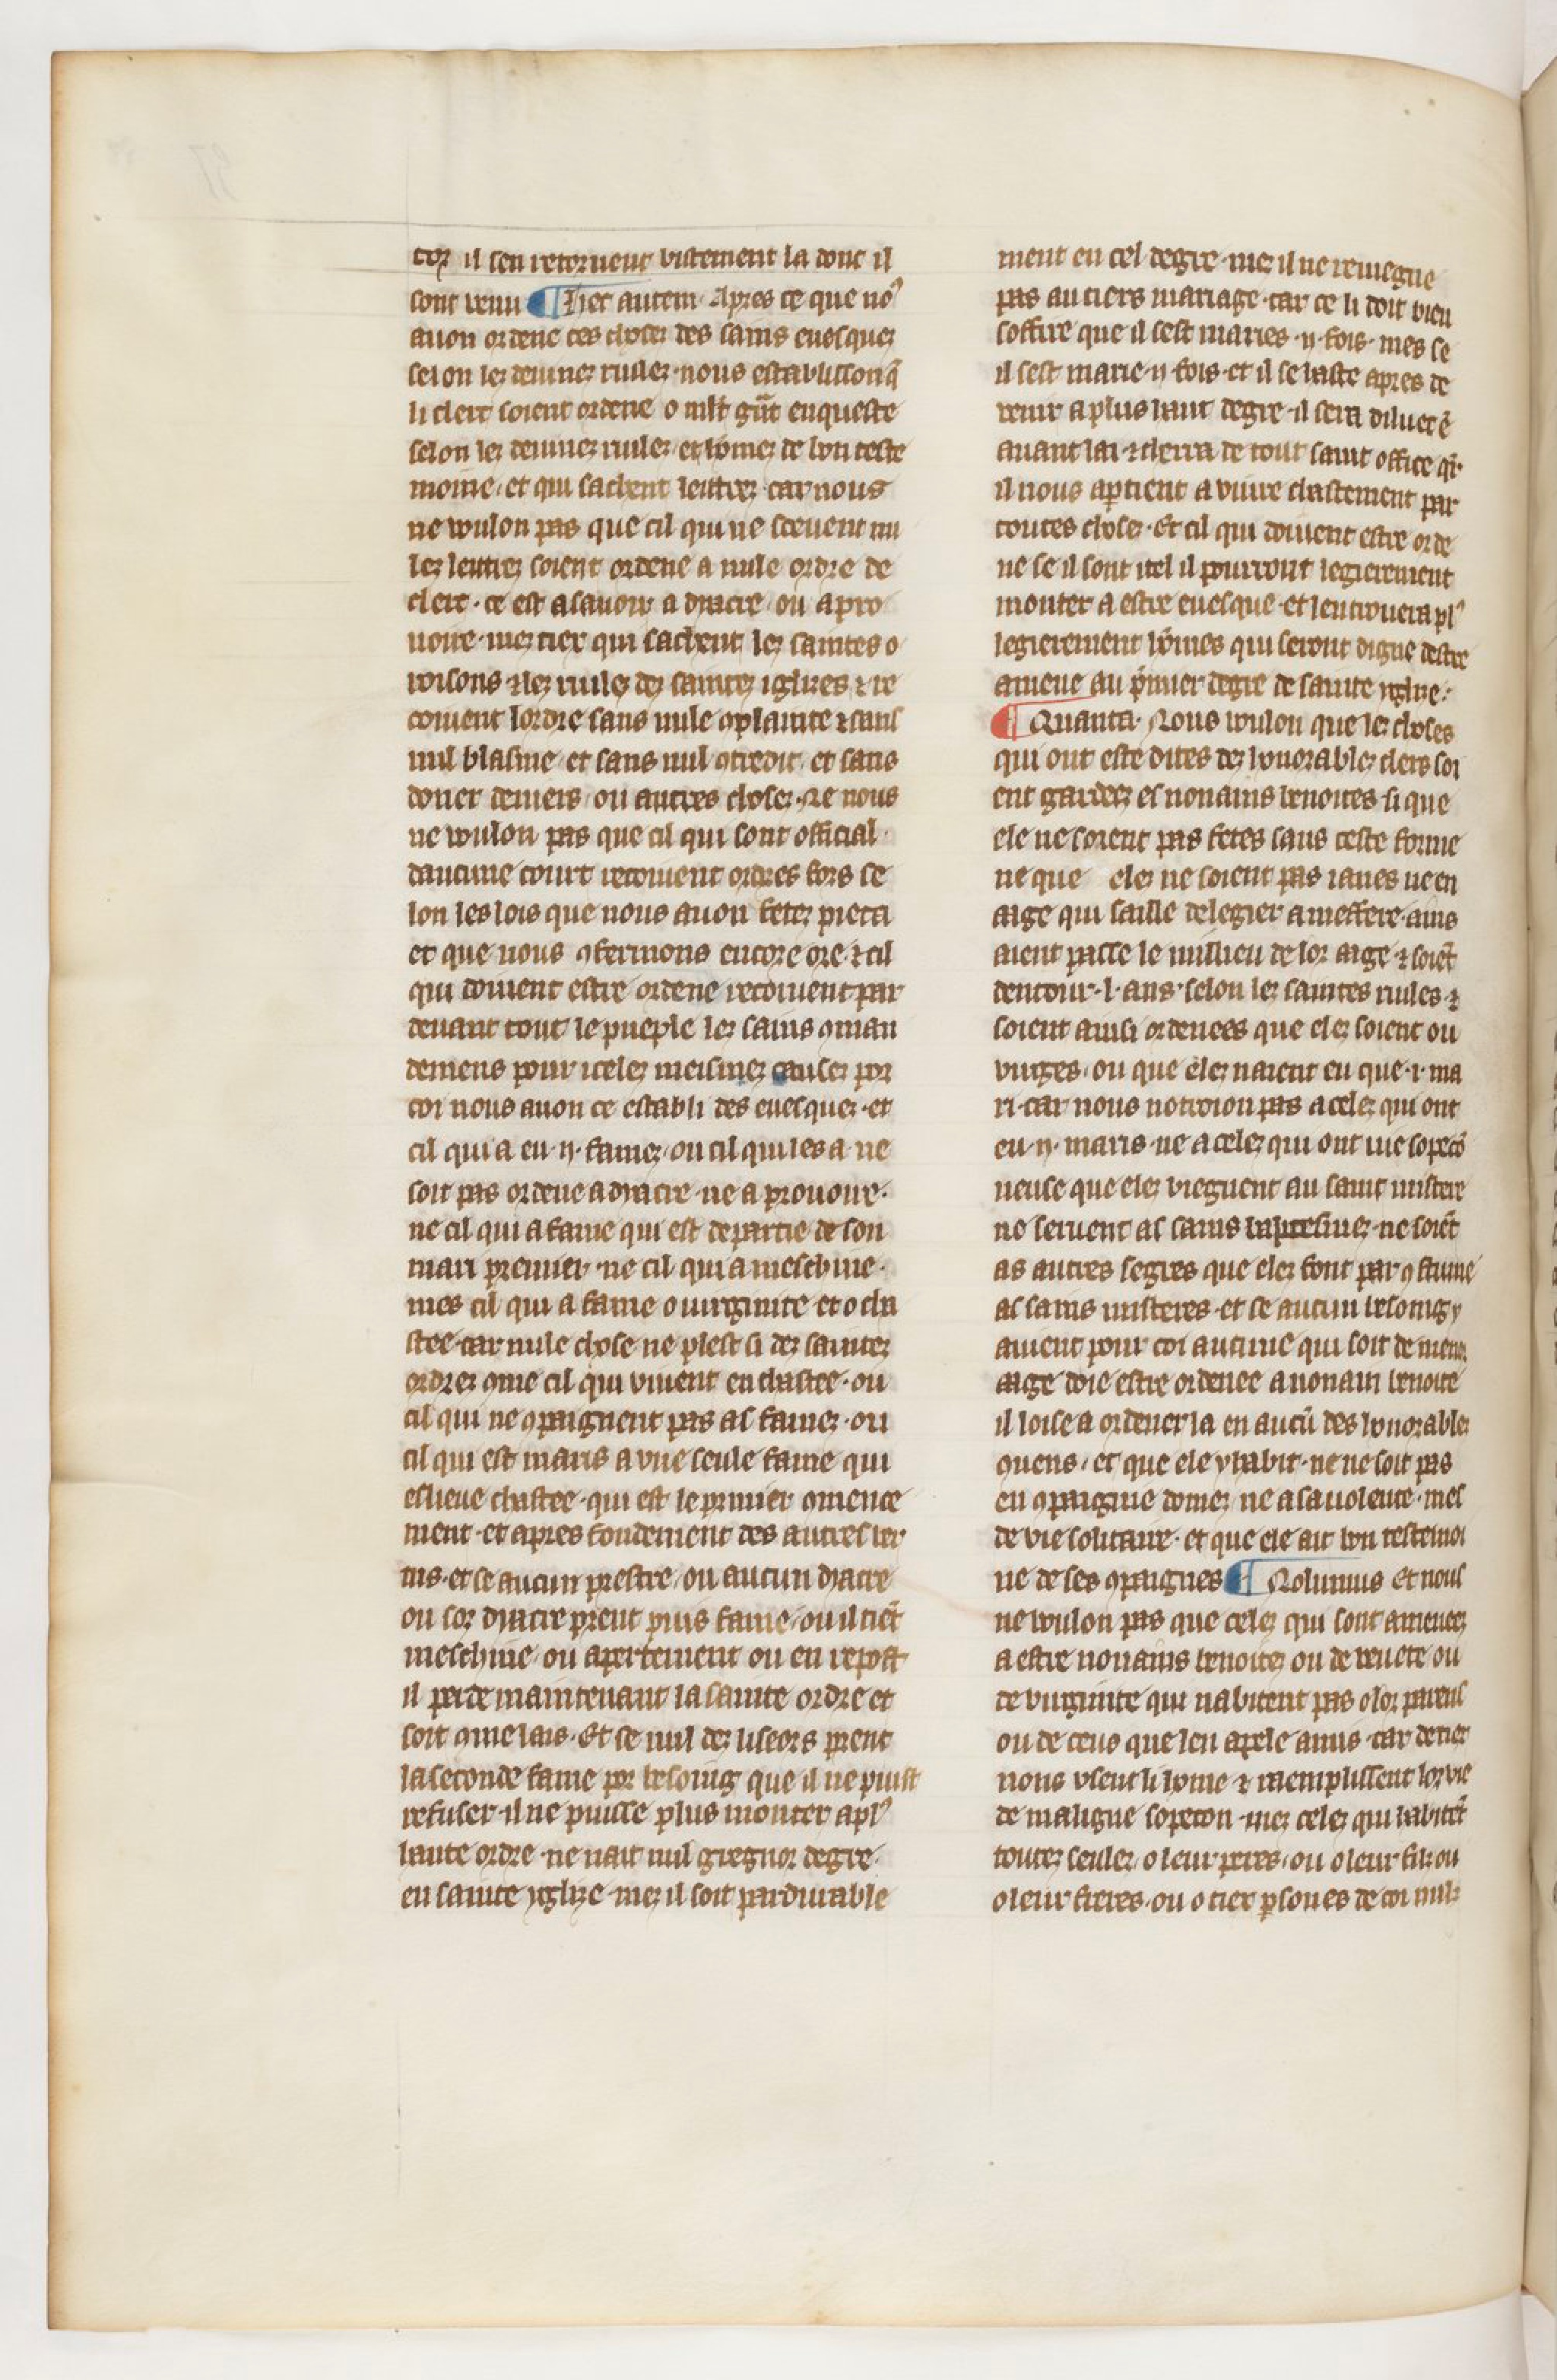 tor il sen retornent vistement la dont il
sont venu ¶ Hec autem. Apres ce que no⁹
auon ordene ces choses des sains euesques
selon les deuines riules. nous establisson q̃
li clerc soient ordene o mlt grãt enqueste
selon les deuines riules. et homes de bon teste
moine. et qui sachent lettres. car nous
ne voulon pas que cil qui ne sceuent nu
les lettres soient ordene a nule ordre de
clerc. ce est asauoir a dyacre. ou a pro
uoire. mes tiex qui sachent les saintes o
roisons ⁊ les riules des saintes iglises ⁊ re
coiuent lordre sans nule ꝯplainte ⁊ sans
nul blasme et sans nul ꝯtredit. et sans
doner deniers. ou autres choses. Ne nous
ne voulon pas que cil qui sont official
daucune court recoiuent ordres fors se
lon les lois que nous auon fetes pieca
et que nous ꝯfermons encore ore. ⁊ cil
qui doiuent estre ordene recoiuent par
deuant tout le pueple les sains ꝯman
demens pour iceles meismes causes por
coi nous auon ce establi des euesques. et
cil qui a eu .ij. fames. ou cil qui les a. ne
soit pas ordene a dyacre. ne a prouoire.
ne cil qui a fame qui est departie de son
mari premier. ne cil qui a meschine.
mes cil qui a fame o uirginite et o cha
stee. car nule chose ne plest si des saintes
ordres ꝯme cil qui viuent en chastee. ou
cil qui ne ꝯpaignent pas as fames. ou
cil qui est maris a vne seule fame qui
eslieue chastee. qui est le premier ꝯmence
ment. et apres fondement des autres ver
tus. et se aucun prestre. ou aucun dyacre
ou soz dyacre prent puis fame. ou il tiẽt
meschine. ou apertement ou en repost
il perde maintenant la sainte ordre et
soit ꝯme lais. Et se nul des liseors prent
la seconde fame por besoing que il ne puist
refuser. il ne puisse plus monter a pl⁹
haute ordre. ne nait nul gregnor degre.
en sainte yglise. mes il soit pardurable
ment en cel degre. mes il ne reuiegne
pas au tiers mariage. car ce li doit bien
soffire que il sest maries .ij. fois. mes se
il sest marie .ij. fois. et il se haste apres de
venir a plus haut degre. il sera
auant lai ⁊ cherra de tout saint office. qr̃
il nous apartient a viure chastement par
toutes choses. Et cil qui doiuent estre orde
ne se il sont itel il pourront legierement
monter a estre euesque. et len trouuera pl⁹
legierement hõmes qui seront digne destre
amene au p̃mier degre de sainte yglise.
¶ Quanta. Nous voulon que les choses
qui ont este dites des honorables clers soi
ent gardees es nonains benoites. si que
ele ne soient pas fetes sans ceste forme
ne que eles ne soient pas ianes ne en
aage qui saille de legier a meffere. ains
aient passe le millieu de lor aage. ⁊ soiẽt
dentour .l. ans. selon les saintes riules. ⁊
soient ainsi ordenees que eles soient ou
virges. ou que eles naient eu que .i. ma
ri. car nous notroion pas a celes qui ont
eu .ij. maris. ne a celes qui ont vie sopeco
neuse que eles viegnent au saint mistere
ne seruent as sains baptesmes. ne soiẽt
as autres segres que eles font par ꝯstume
as sains misteres. et se aucun besoing y
auient pour coi aucune qui soit de meneˀ
aage doie estre ordenee a nonain benoite
il loise a ordener la en aucũ des honorables
ꝯuens. et que ele y habit. ne ne soit pas
en ꝯpaignie domes. ne a sa volente. mes
de vie solitaire. et que ele ait bon testemoi
ne de ses ꝯpaignes ¶ Nolumus Et nous
ne voulon pas que celes qui sont amenees
a estre nonains benoites ou de veueté ou
de virginite qui nabitent pas o lor parens
ou de ceus que len apele amis. car de tiex
nons vsent li home ⁊ raemplissent lor vie
de maligne sopecon. mes celes qui habitẽt
toutes seules. o leur peres. ou o leur filz ou
o leur freres. ou o tiex p̱sones de coi nulz